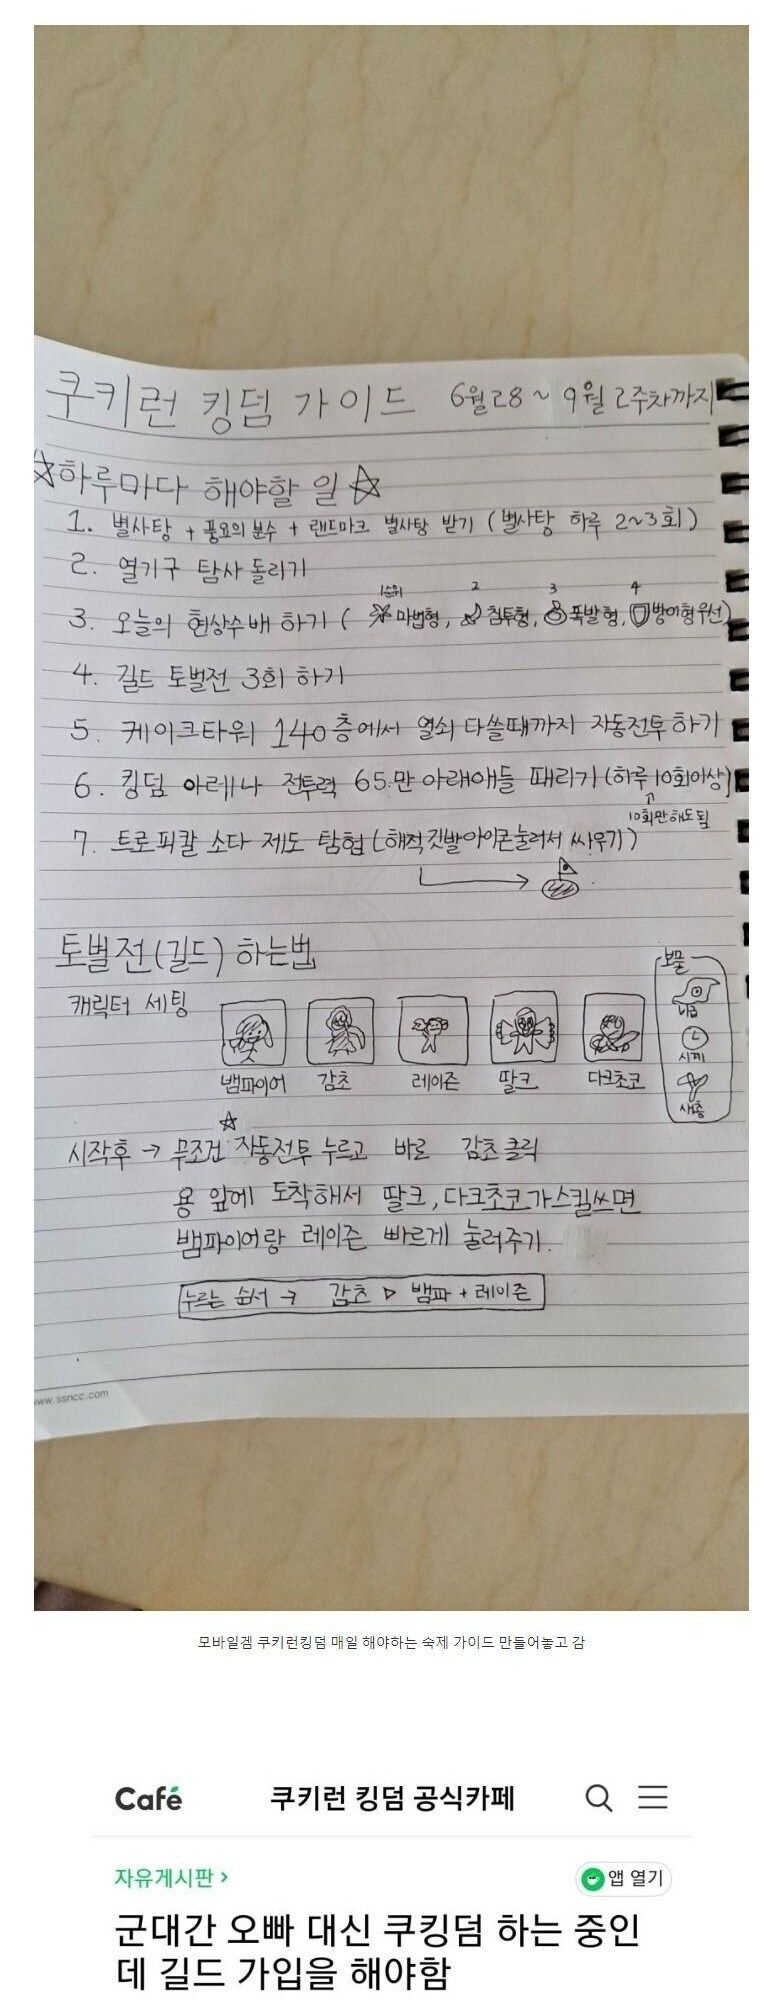 쿠키런 킹덤 가이드 6월28 ~ 9월 2주차까지
☆하루마다 해야할 일☆
1. 별사탕 + 풍요의 분수 + 랜드마크 별사탕 받기 (별사탕 하루 2~3회)
2. 열기구 탐사 돌리기
1순위 2 3 4
3. 오늘의 현상수배 하기 ( 마법형, 침투형, 폭발형, 방어형우선)
4. 길드 토벌전 3회 하기
5. 케이크타워 140층에서 열쇠 다쓸때까지 자동전투 하기
6. 킹덤 아레나 전투력 65만 아래애들 때리기 (하루 10회이상)
10회만해도됨
7. 트로피칼 소다 제도 탐험 (해적깃발아이콘눌러서 싸우기)
토벌전(길드) 하는법
보물
캐릭터 세팅
시계
뱀파이어 감초 레이즌 딸크 다크초코
☆
시작후 → 무조건 자동전투 누르고 바로 감초클릭
용 앞에 도착해서 딸크, 다크초코가스킬쓰면
뱀파이어랑 레이즌 빠르게 눌러주기.
누르는 순서 → 감초 ▷ 뱀파 + 레이즌
www.ssncc.com
모바일겜 쿠키런킹덤 매일 해야하는 숙제 가이드 만들어놓고 감
Café 쿠키런 킹덤 공식카페
자유게시판 > 앱 열기
군대간 오빠 대신 쿠킹덤 하는 중인
데 길드 가입을 해야함